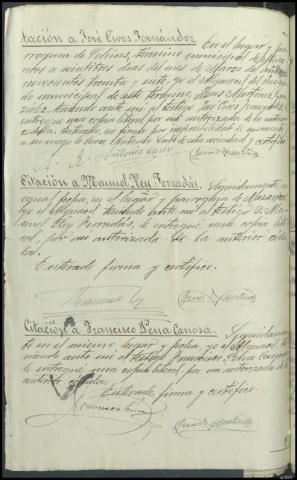 tación a José Cives Fernández. En el lugar y pa-
rroquia de Colúns, término municipal de Maza-
ricos a veintitres dias del mes de Marzo de mil no-
vecientos treinta y siete, yo el Alguacil del juzga-
do municipal de este término, Martínez
teniendo ante mí al testigo José Cives Fernández
entregué una copia literal por mi autorizada de la anterior
cédula. Enterado, no firma por imposibilidad
a su ruego lo hace de esta vecindad y certifico
A. R. Antonio
Citación a Manuel Rey Ferradás. Seguidamente en
igual fecha, en el lugar y parroquia de Mazaricos
yo el Alguacil teniendo ante mí al testigo D. Ma-
nuel Rey Ferradás, le entregué una copia lite-
ral, por mi autorizada de la anterior cédu-
la.
Enterado firma y certifico.
Manuel Rey
Citación a Francisco Pena Canosa. Seguidamen-
te en el mismo lugar y fecha yo el Alguacil te-
niendo ante mí al testigo Francisco Pena Canosa
le entregué, una copia literal por mi autorizada de la
anterior cédula.
Enterado, firma y certifico.
Francisco Pena